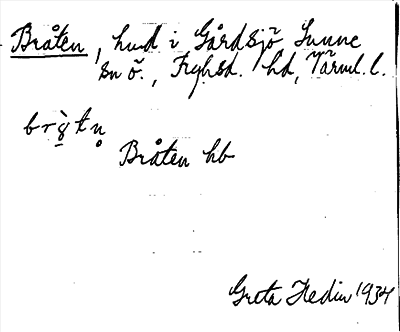 Bråten, hmd i Gårdsjö Sunne
sn ö., Fryksd. hd, Värml. l.
Bråten hb
Greta Hedin 1934